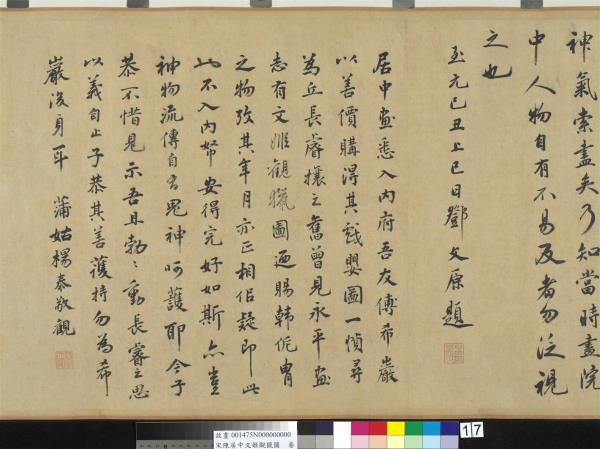 神氣索盡矣乃知當時畫院
中人物自有不易及者勿泛視
之也
至元己丑上巳日鄧文原題
居中畫悉入內府吾友傅希巖
以善價購得其戲嬰圖一幀尋
為丘長睿攘之舊曾見永平畫
志有文姬觀獵圖迺賜韓侂胄
之物攷其年月亦正相侣疑即此
此不入內帑安得完好如斯亦豈
神物流傳自有鬼神呵護耶今子
恭不惜見示吾且勃〻動長睿之思
以義自止子恭其善護持勿為希
巖後身耳 蒲姑楊泰敬觀
故畫 001475N000000000
宋陳居中文姬觀獵圖 卷
17